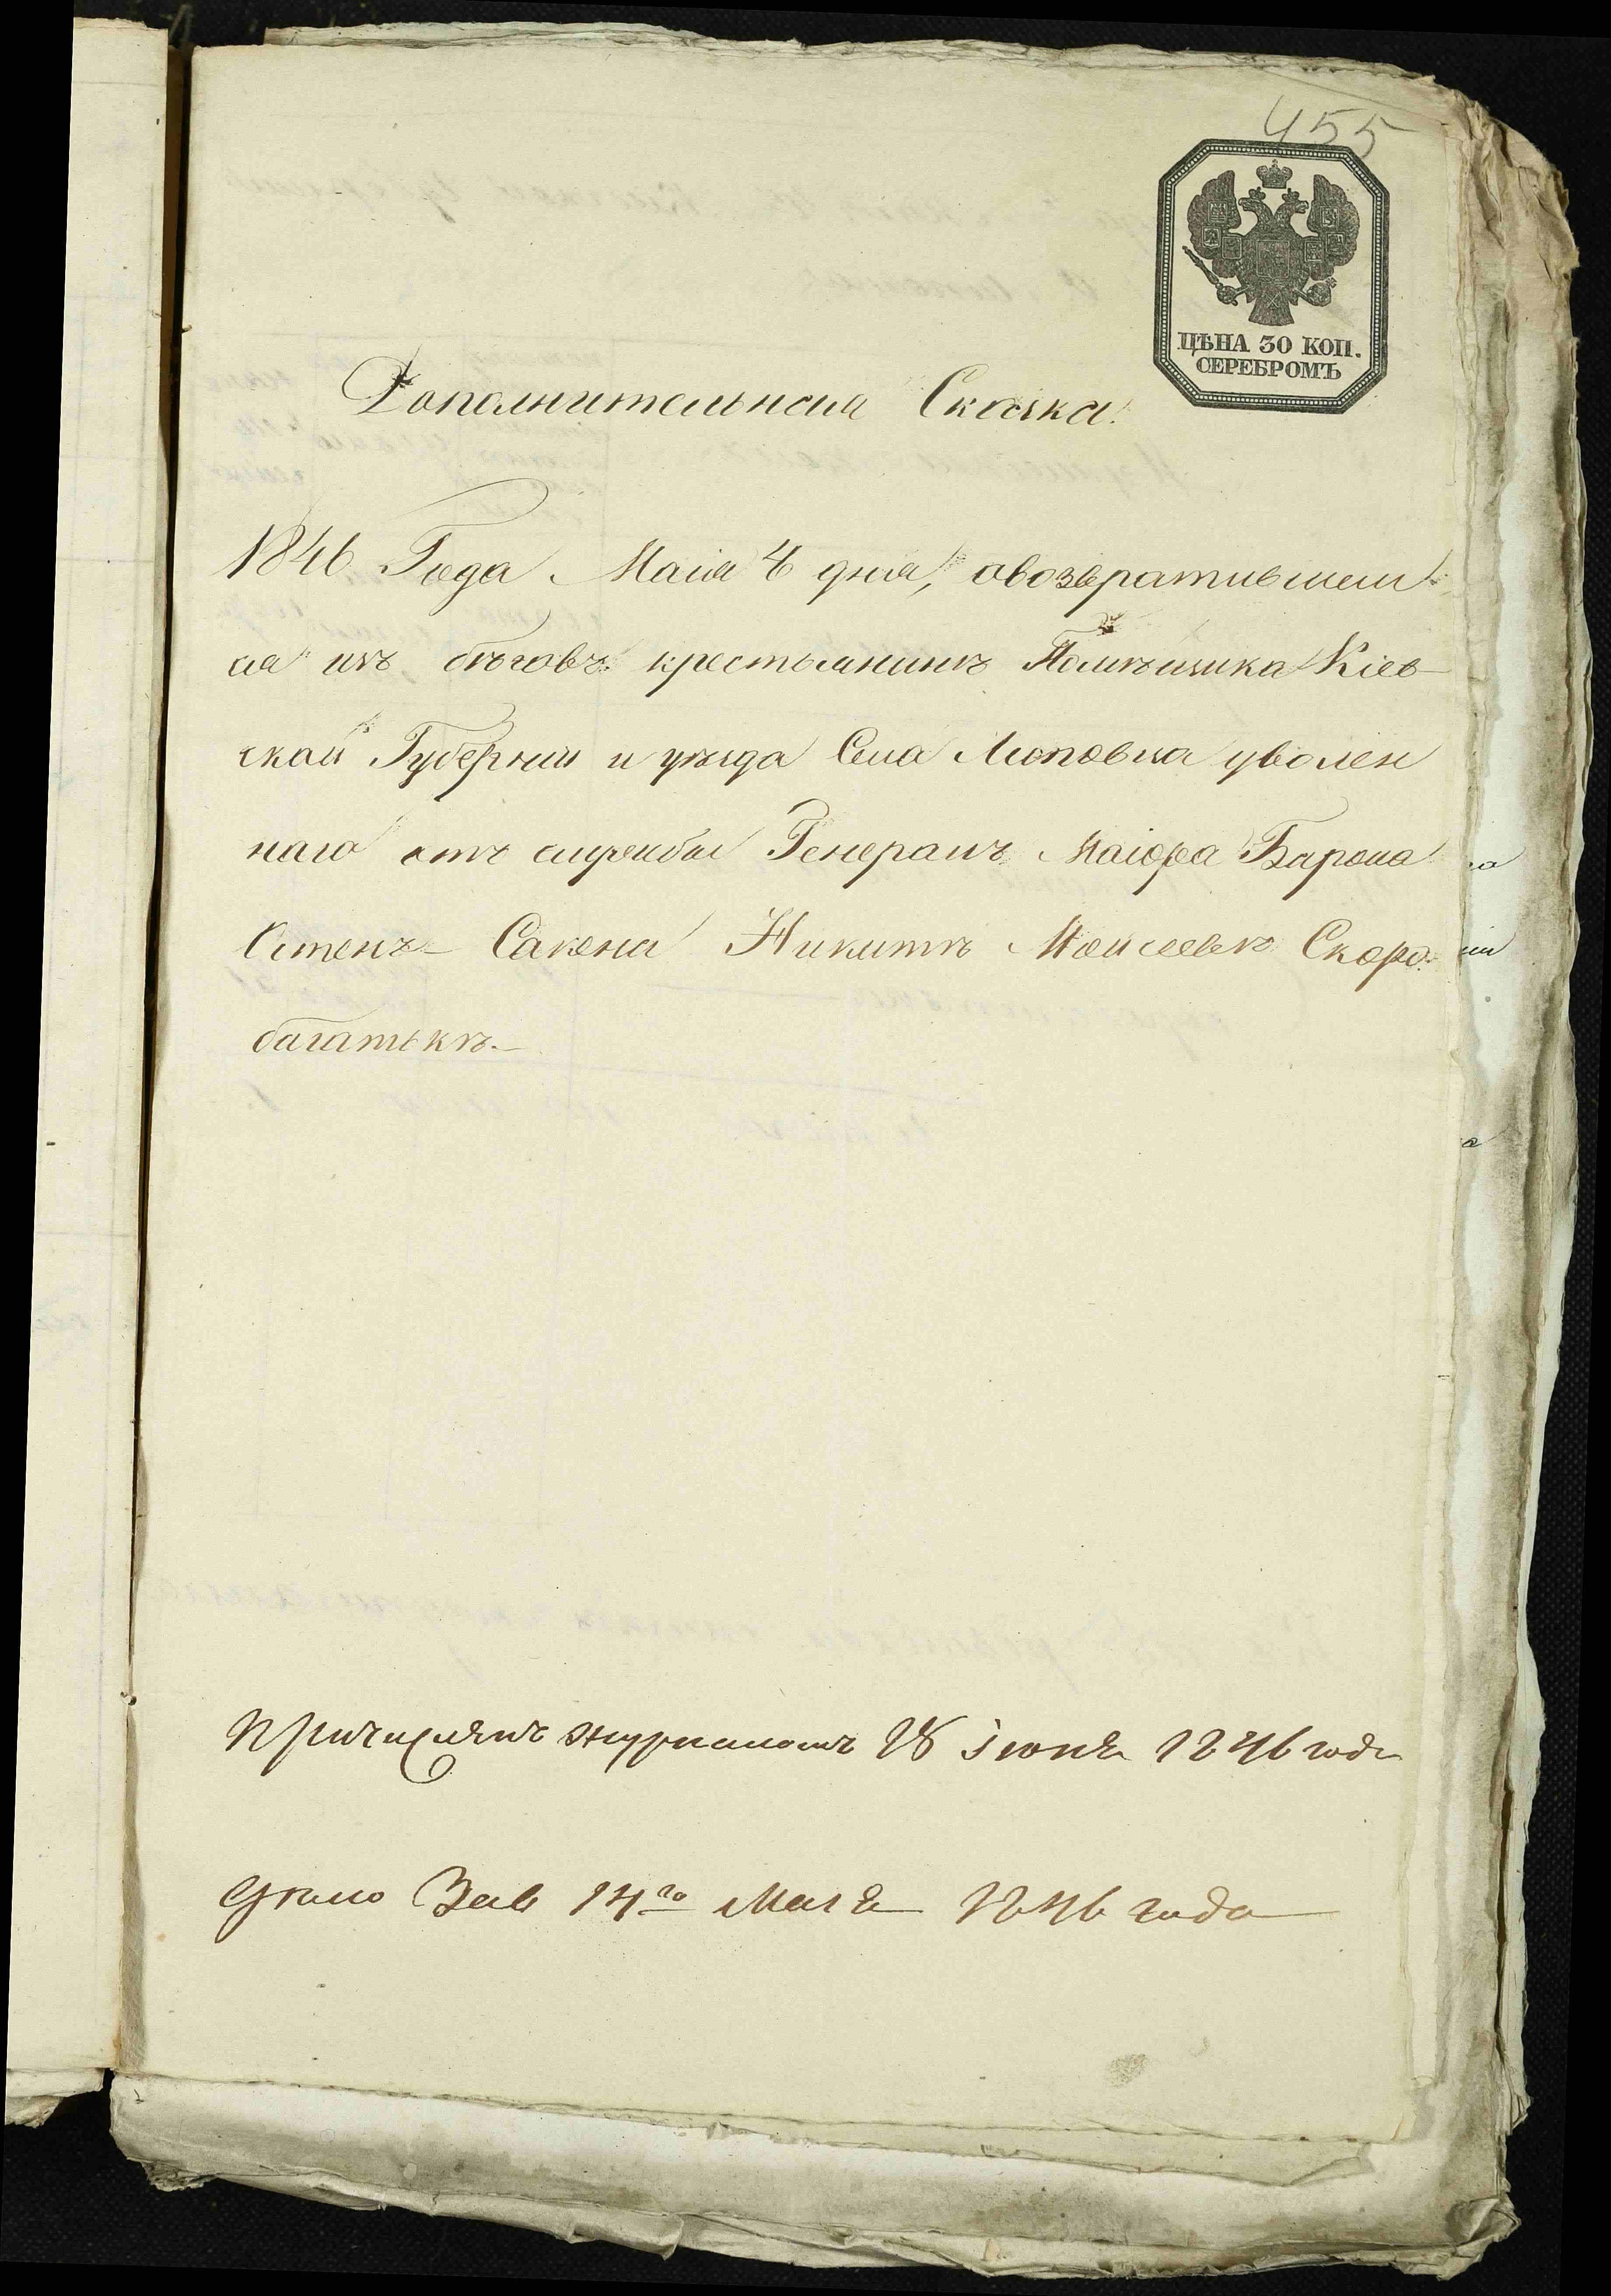 455
ЦѢНА 30 КОП.
СЕРЕБРОМЪ
Дополнительная Сказка.
1846 Года Маія 4 дня, овозвратившем
ся изъ бѣговъ крестьянинѣ Помѣщика Кіев-
ской Губерніи и уѣзда Села Липовка уволен
наго отъ службы Генералъ Маіора Барона
Остенъ-Сакена Никитѣ Моисеевѣ Скоро-
багатькѣ.-
Причисленъ журналомъ 28 іюня 1846 года
14го Маія 1846 года